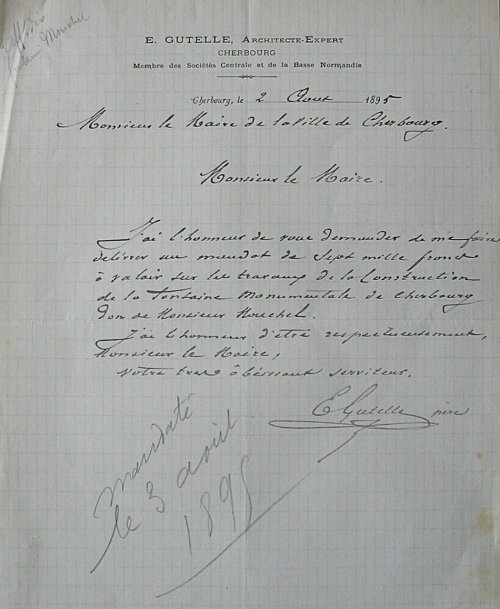 E. GUTELLE, ARCHITECTE-EXPERT
CHERBOURG
Membre des Sociétés Centrale et de la Basse Normandie
Cherbourg, le 2 Aout 1895
Monsieur le Maire de la Ville de Cherbourg.
Monsieur le Maire.
J'ai l'honneur de vous demander de me faire
délivrer un mandat de Sept mille francs
à valoir sur les travaux de la Construction
de la Fontaine Monumentale de Cherbourg
don de Monsieur Mouchel.
J'ai l'honneur d'être respectueusement,
Monsieur le Maire,
Votre très obéissant serviteur.
E Gutelle père
Mandaté
le 3 août
1895